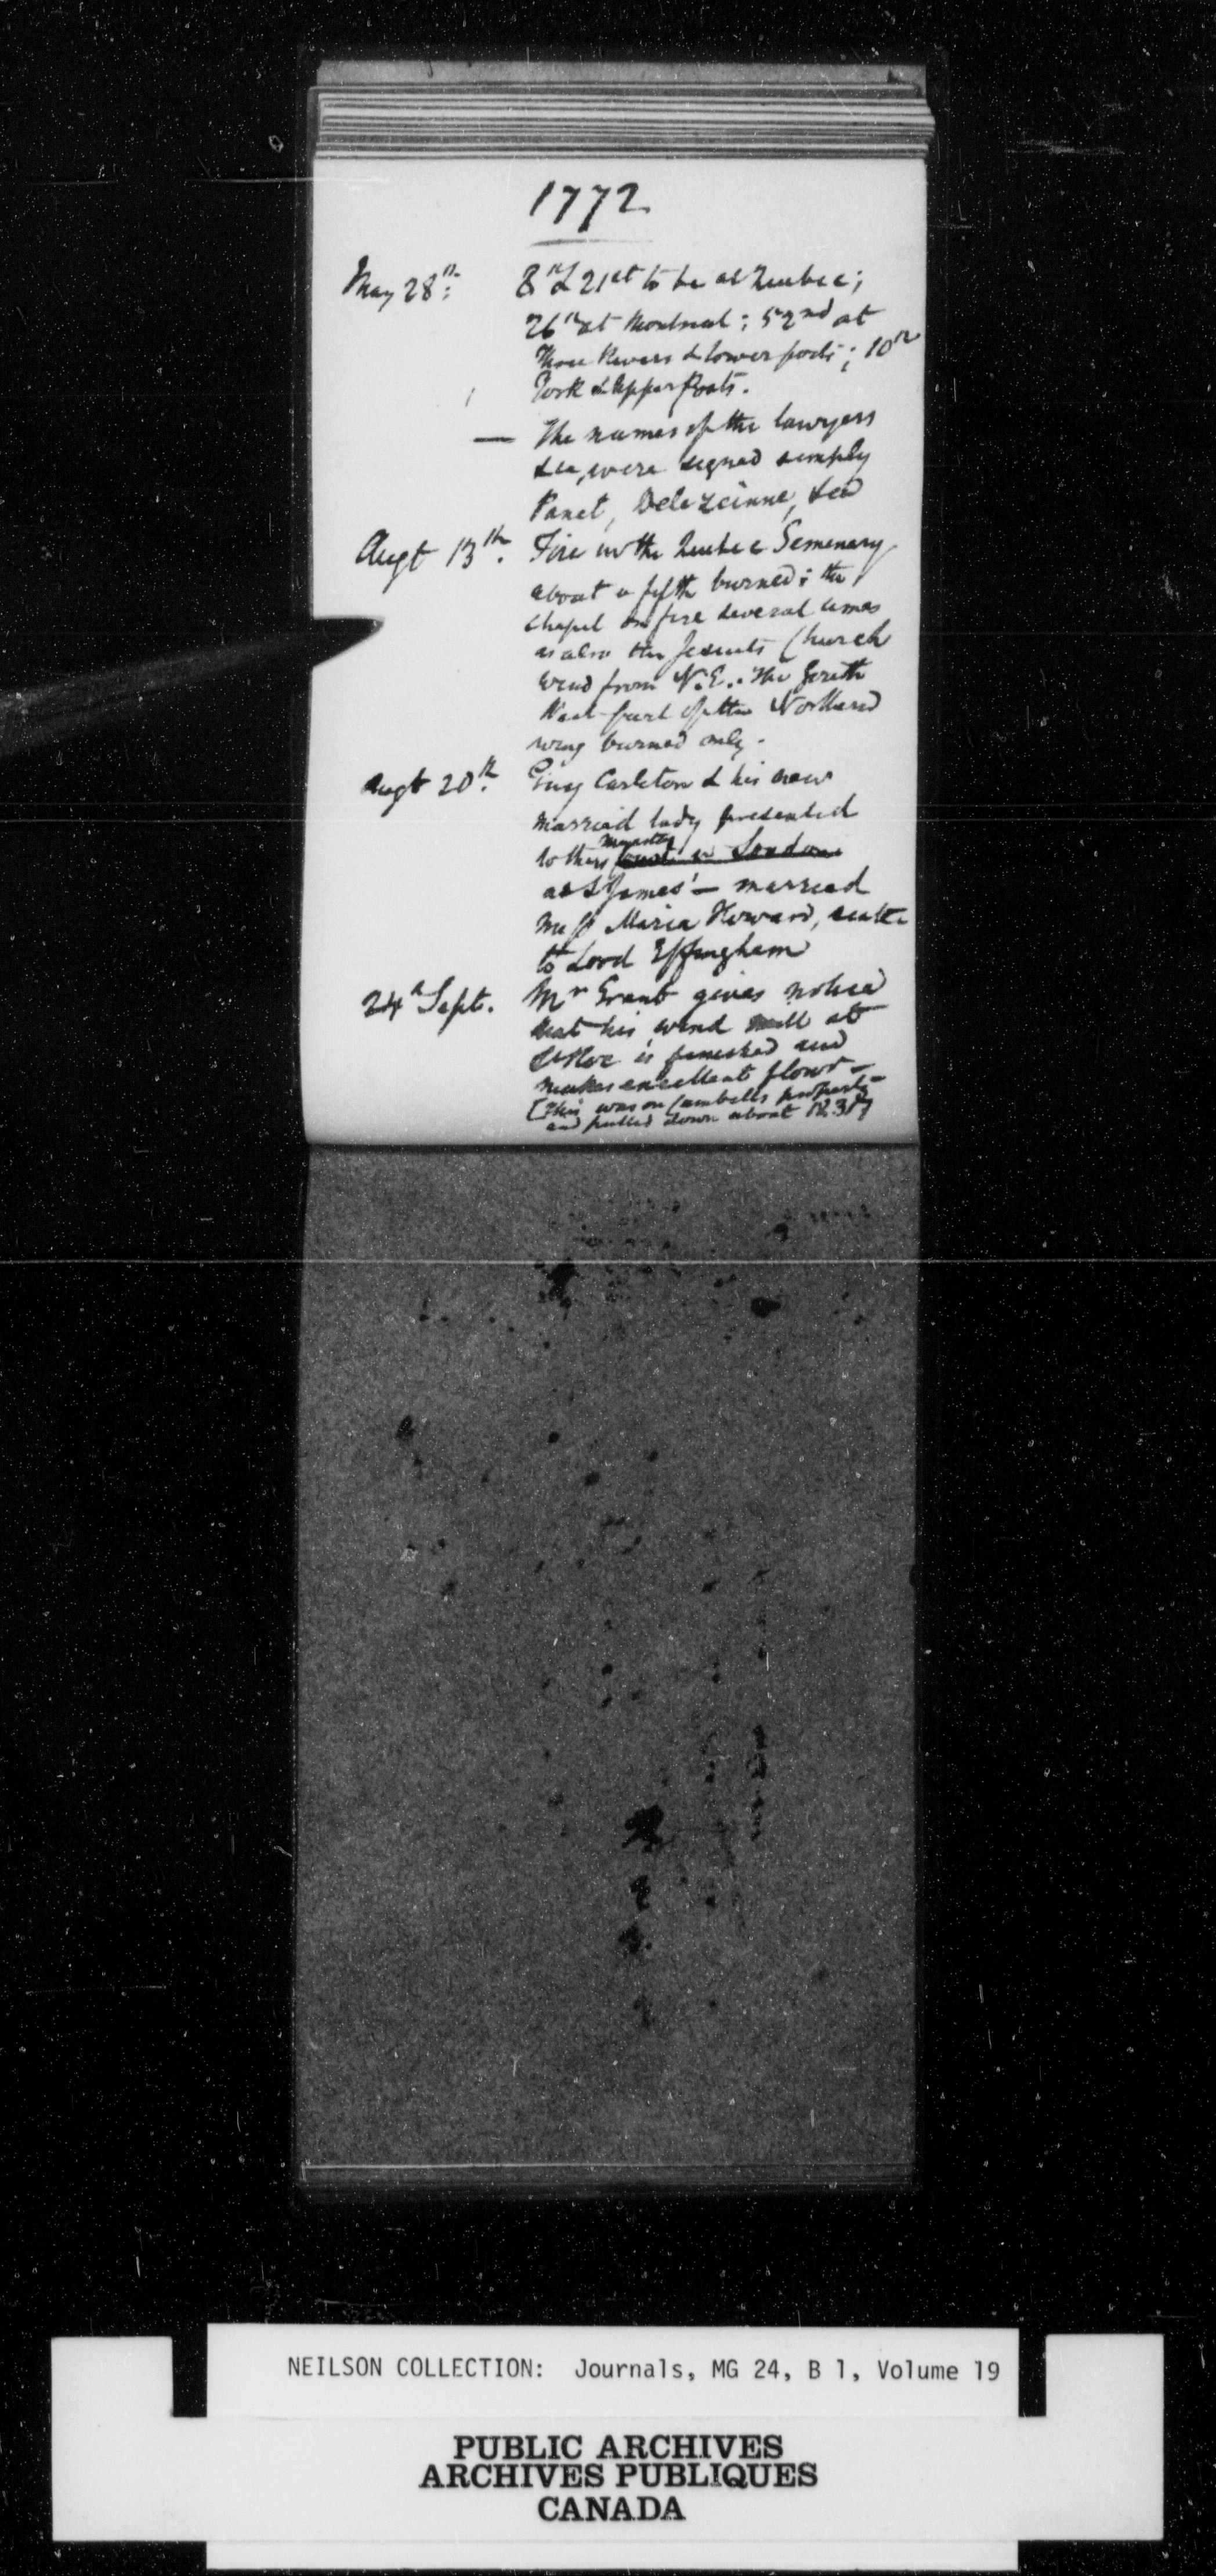 1772
May 28th: 8th & 21st to be at Quebec;
26th at Montreal; 52nd at
Three Rivers & lower posts; 10th
York & Upper Posts.
— The names of the lawyers
&ca, were signed simply
Panet, Delezeinne, &ca
Augt 13th. Fire in the Quebec Semenary
about a fifth burned; the
chapel on fire several times
as also the Jesuits Church
wind from N.E. The
part of the Northern
wing burned only.
Augt 20th. Guy Carleton & his new
married lady presented
to their Majesties in London
at St James' — married
Miss Maria Howard,
to Lord Effingham
24th Sept. Mr Grant gives notice
that his wind mill at
St Roc is finished and
makes excellent flour —
[This was on Cambells property —
and pulled down about
NEILSON COLLECTION: Journals, MG 24, B 1, Volume 19
PUBLIC ARCHIVES
ARCHIVES PUBLIQUES
CANADA